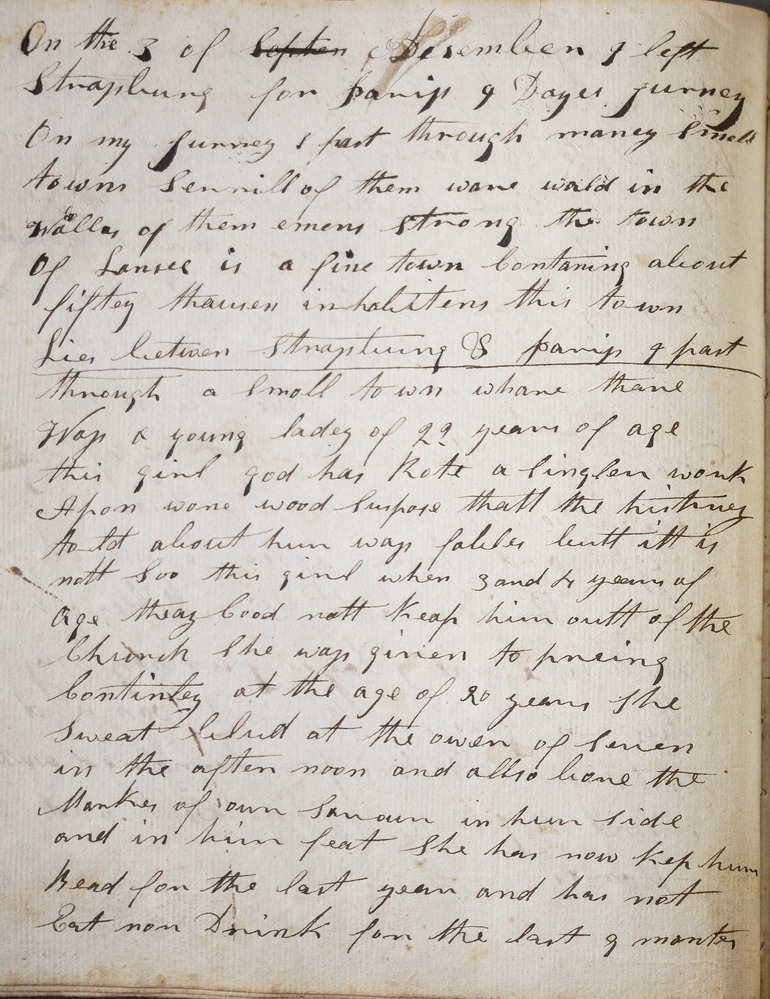 On the 3 of Septem Desember I left
Strasburg for Paris 9 Dayes jurney
On my jurney I past through maney Small
towns Severill of them ware wald in the
Walls of them emens strong the town
Of Lansee is a fine town Containing about
fiftey thausen inhabitens this town
Lies between Strasburg & Paris I past
through a Smoll town whare thare
Was a young ladey of 22 years of age
this girl god has Rote a Singler work
Apon wone wood Suspose thatt the histrey
told about hur was falles butt itt is
nott Soo this girl when 3 and 4 years of
Age theay Cood nott Keap him outt of the
Church She was given to preing
Continley at the age of 20 years She
Sweat blud at the ower of Seven
in the after noon and allso bore the
Markes of our Saviour in hur Side
and in him feat She has now Kep hur
Bead for the last year and has not
Eat nor Drink for the last 9 montes